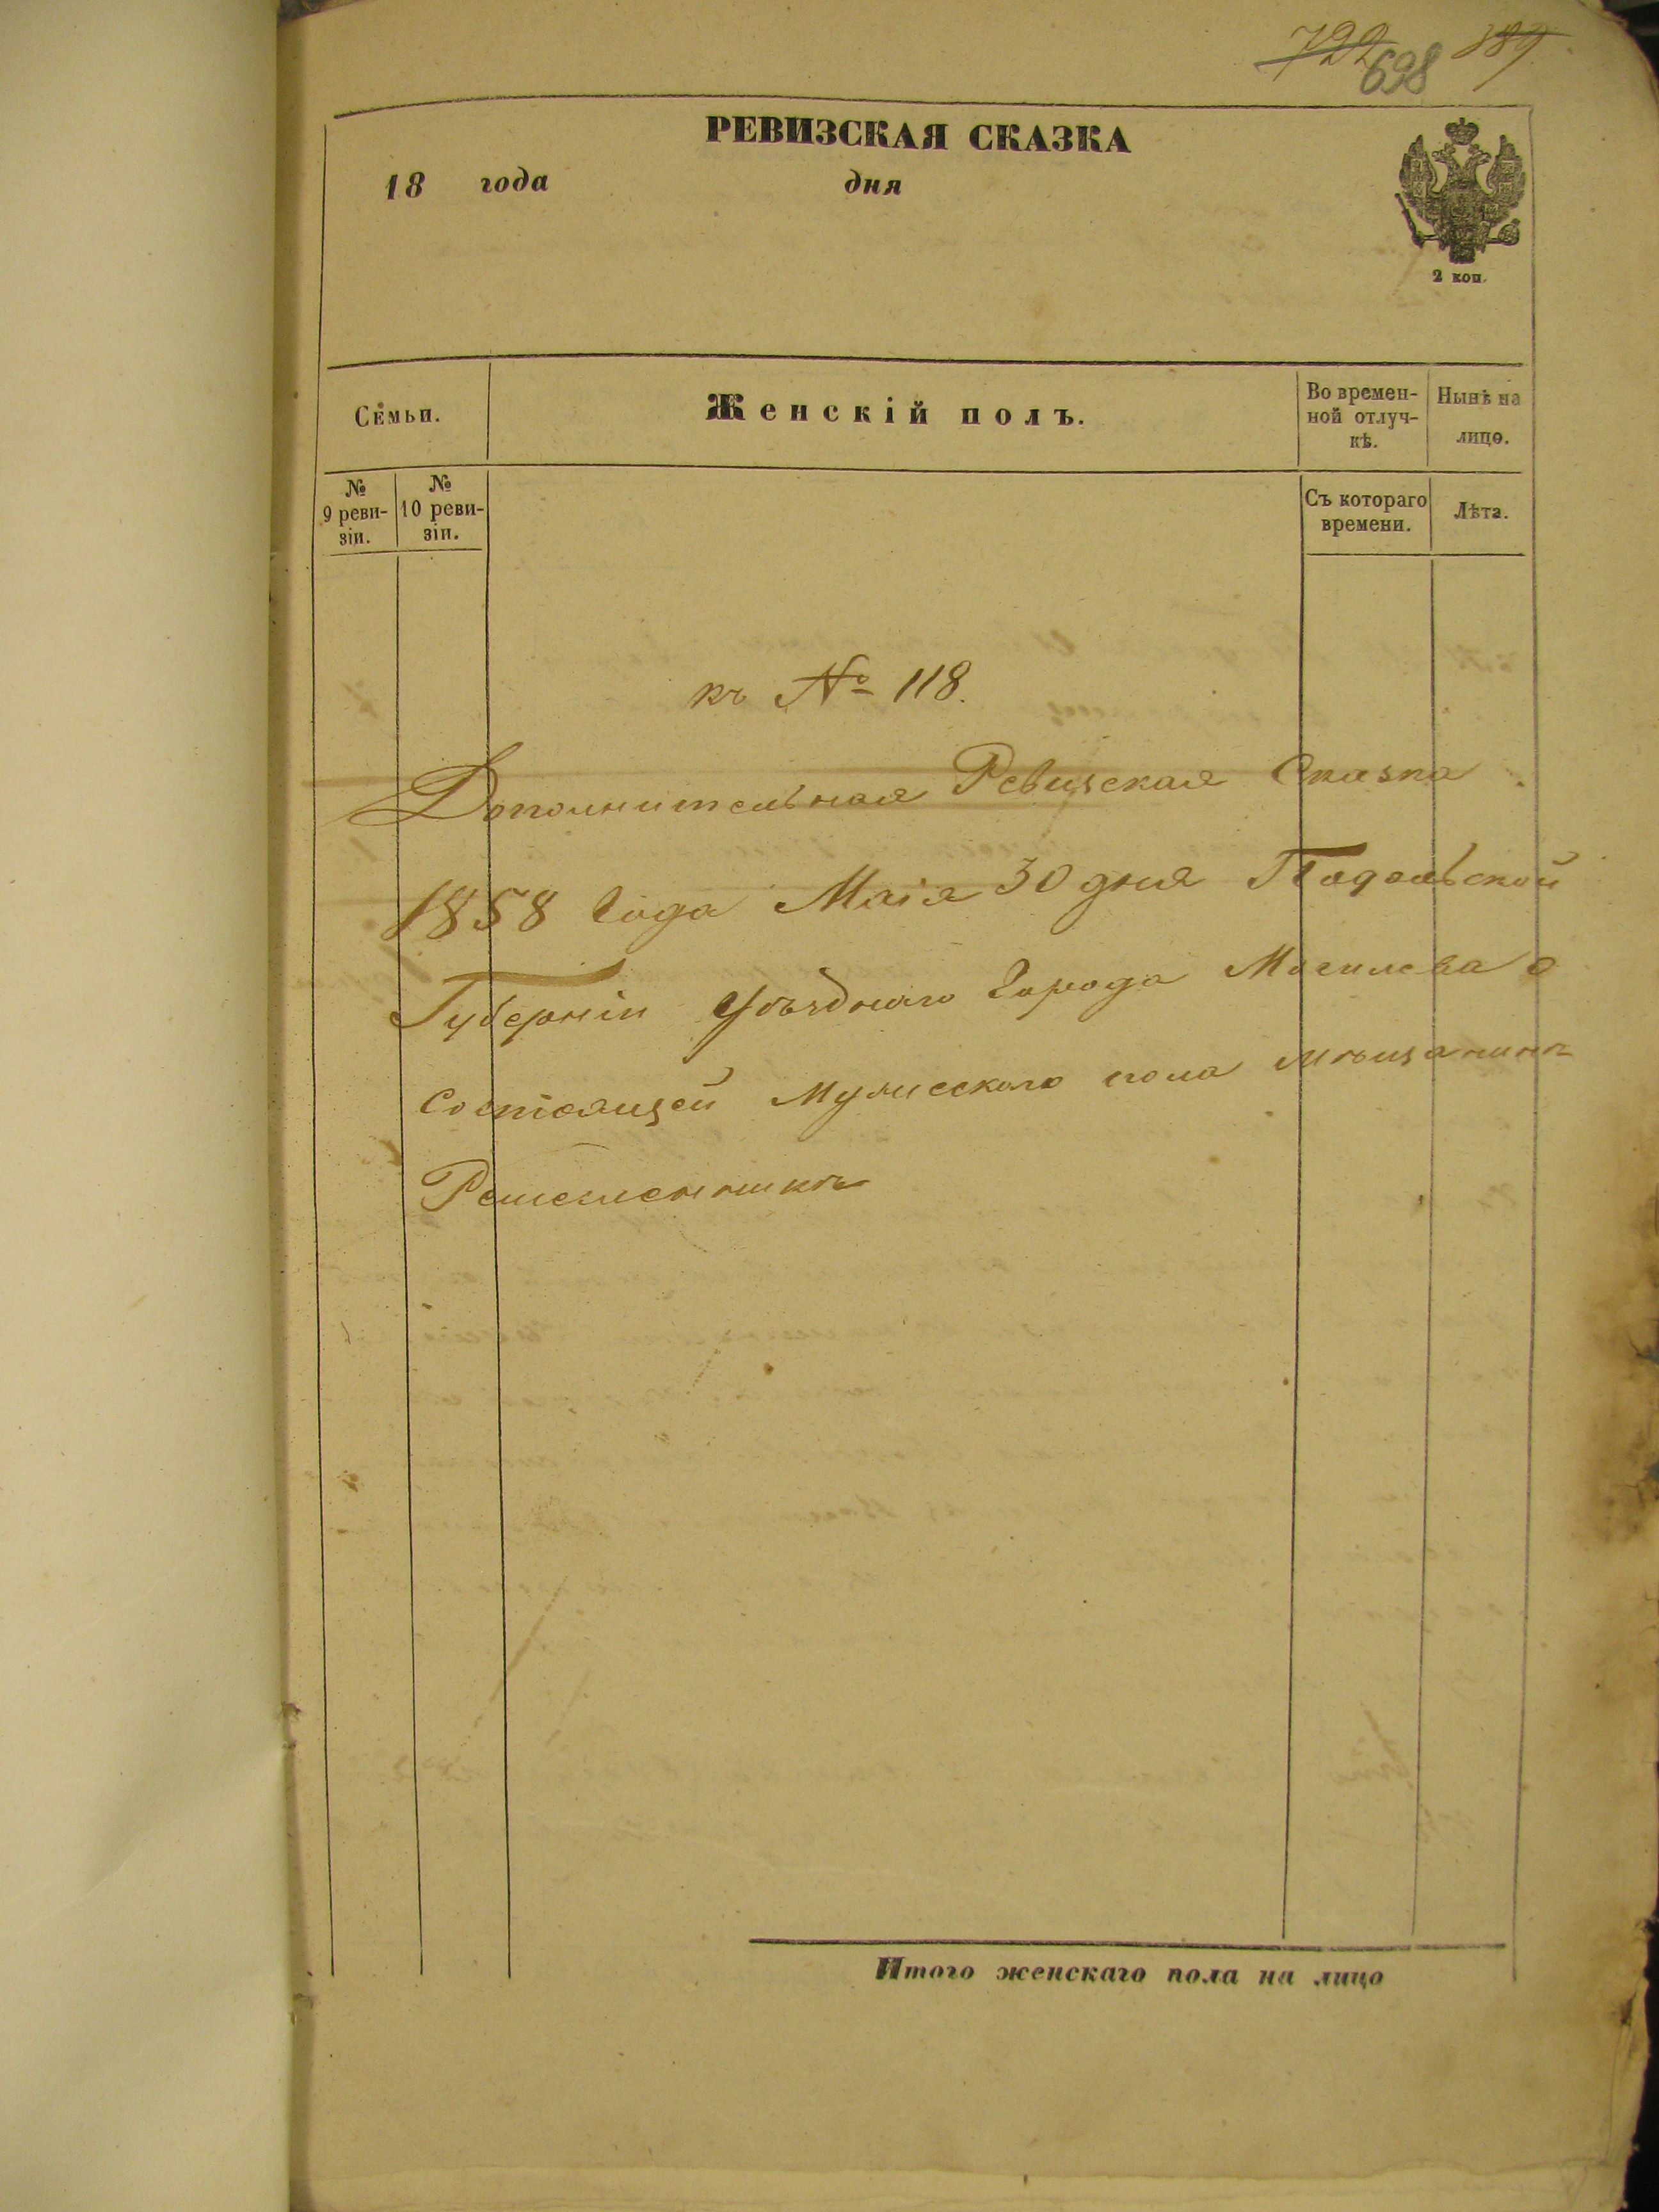 722 698 189
РЕВИЗСКАЯ СКАЗКА
18 года дня
2 коп.
Семьи.
Женскій полъ.
Во времен-
ной отлуч-
кѣ.
Нынѣ на
лицо.
№
9 реви-
зіи.
№
10 реви-
зіи.
Съ котораго
времени.
Лѣта.
къ № 118.
Дополнительная Ревизская Сказка
1858 Года Маія 30 дня Подольской
Губерніи Уѣзднаго Города Могилева о
состоящей Мужескаго пола Мѣщанинъ
Ремесленникъ
Итого женскаго пола на лицо